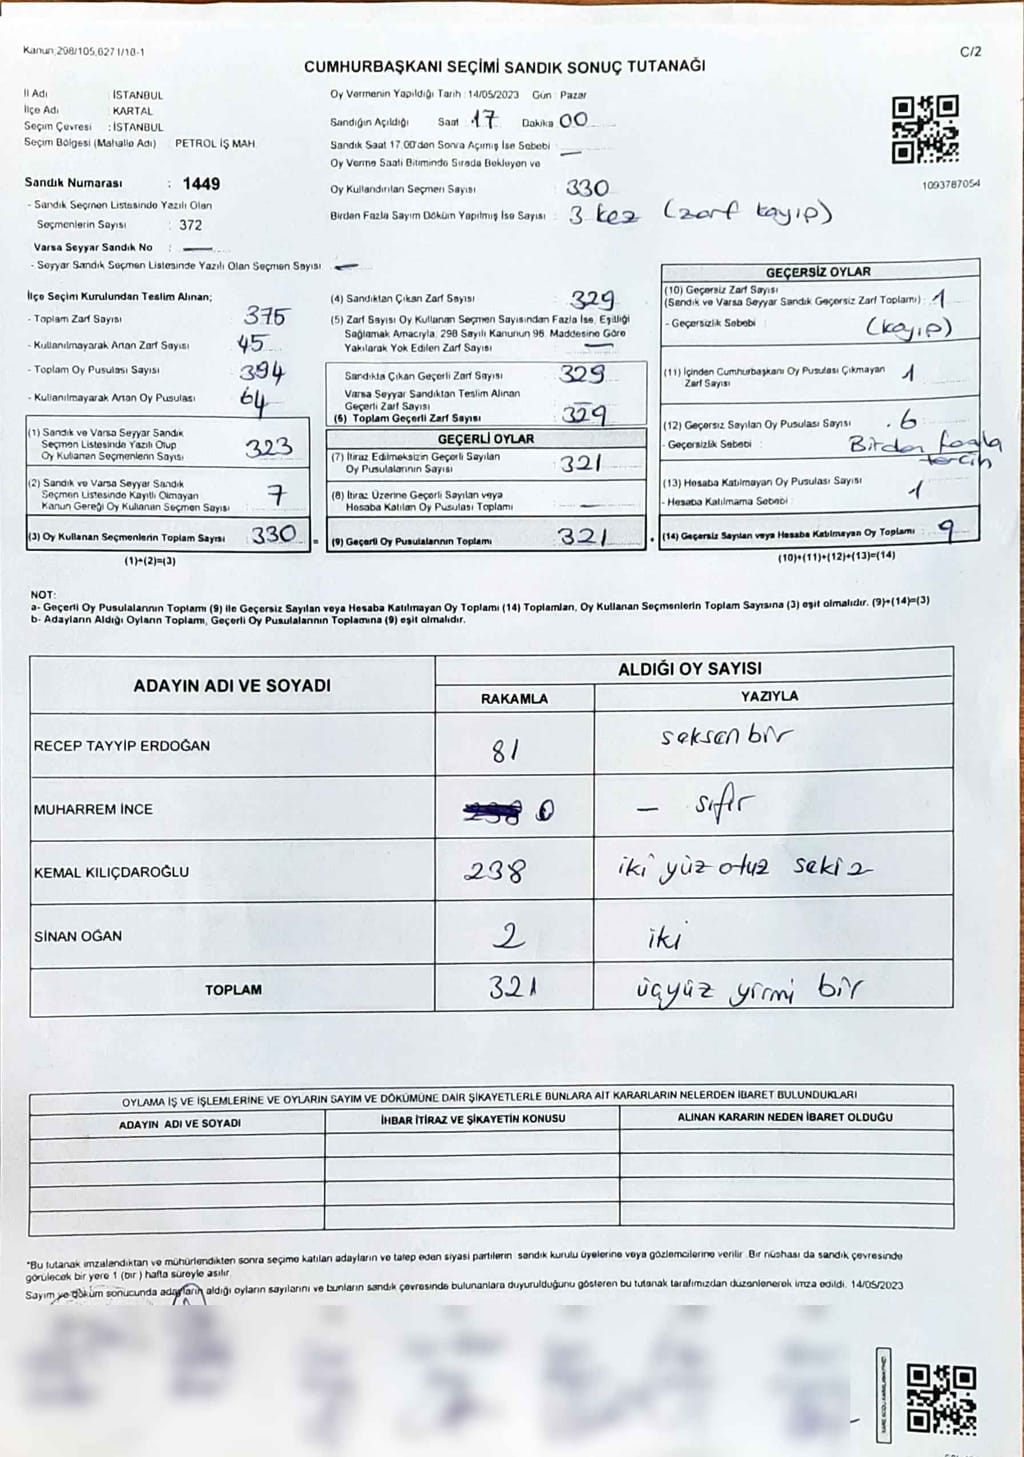 Kanun.298/105,6271/18-1
C/2
CUMHURBAŞKANI SEÇİMİ SANDIK SONUÇ TUTANAĞI
İl Adı : İSTANBUL
İlçe Adı : KARTAL
Seçim Çevresi : İSTANBUL
Seçim Bölgesi (Mahalle Adı) PETROL İŞ MAH.
Sandık Numarası : 1449
- Sandık Seçmen Listesinde Yazılı Olan
Seçmenlerin Sayısı : 372
Varsa Seyyar Sandık No : —
- Seyyar Sandık Seçmen Listesinde Yazılı Olan Seçmen Sayısı —
Oy Vermenin Yapıldığı Tarih : 14/05/2023 Gün : Pazar
Sandığın Açıldığı Saat 17 Dakika 00
Sandık Saat 17.00'den Sonra Açılmış İse Sebebi : —
Oy Verme Saati Bitiminde Sırada Bekleyen ve
Oy Kullandırılan Seçmen Sayısı : 330
Birden Fazla Sayım Döküm Yapılmış İse Sayısı : 3 kez (zarf kayıp)
1093787054
İlçe Seçim Kurulundan Teslim Alınan;
- Toplam Zarf Sayısı 375
- Kullanılmayarak Artan Zarf Sayısı 45
- Toplam Oy Pusulası Sayısı 394
- Kullanılmayarak Artan Oy Pusulası 64
(1) Sandık ve Varsa Seyyar Sandık
Seçmen Listesinde Yazılı Olup
Oy Kullanan Seçmenlerin Sayısı 323
(2) Sandık ve Varsa Seyyar Sandık
Seçmen Listesinde Kayıtlı Olmayan
Kanun Gereği Oy Kullanan Seçmen Sayısı 7
(3) Oy Kullanan Seçmenlerin Toplam Sayısı 330
(1)+(2)=(3)
(4) Sandıktan Çıkan Zarf Sayısı 329
(5) Zarf Sayısı Oy Kullanan Seçmen Sayısından Fazla İse, Eşitliği
Sağlamak Amacıyla, 298 Sayılı Kanunun 98. Maddesine Göre
Yakılarak Yok Edilen Zarf Sayısı —
Sandıkta Çıkan Geçerli Zarf Sayısı 329
Varsa Seyyar Sandıktan Teslim Alınan
Geçerli Zarf Sayısı
(6) Toplam Geçerli Zarf Sayısı 329
GEÇERLİ OYLAR
(7) İtiraz Edilmeksizin Geçerli Sayılan
Oy Pusulalarının Sayısı 321
(8) İtiraz Üzerine Geçerli Sayılan veya
Hesaba Katılan Oy Pusulası Toplamı —
= (9) Geçerli Oy Pusulalarının Toplamı 321
GEÇERSİZ OYLAR
(10) Geçersiz Zarf Sayısı
(Sandık ve Varsa Seyyar Sandık Geçersiz Zarf Toplamı) : 1
- Geçersizlik Sebebi : (kayıp)
(11) İçinden Cumhurbaşkanı Oy Pusulası Çıkmayan
Zarf Sayısı 1
(12) Geçersiz Sayılan Oy Pusulası Sayısı 6
- Geçersizlik Sebebi : Birden fazla
tercih
(13) Hesaba Katılmayan Oy Pusulası Sayısı 1
- Hesaba Katılmama Sebebi :
(14) Geçersiz Sayılan veya Hesaba Katılmayan Oy Toplamı 9
(10)+(11)+(12)+(13)=(14)
NOT:
a- Geçerli Oy Pusulalarının Toplamı (9) ile Geçersiz Sayılan veya Hesaba Katılmayan Oy Toplamı (14) Toplamları, Oy Kullanan Seçmenlerin Toplam Sayısına (3) eşit olmalıdır. (9)+(14)=(3)
b- Adayların Aldığı Oyların Toplamı, Geçerli Oy Pusulalarının Toplamına (9) eşit olmalıdır.
ADAYIN ADI VE SOYADI
ALDIĞI OY SAYISI
RAKAMLA YAZIYLA
RECEP TAYYİP ERDOĞAN 81 seksen bir
MUHARREM İNCE 238 0 — sıfır
KEMAL KILIÇDAROĞLU 238 iki yüz otuz sekiz
SİNAN OĞAN 2 iki
TOPLAM 321 üçyüz yirmi bir
OYLAMA İŞ VE İŞLEMLERİNE VE OYLARIN SAYIM VE DÖKÜMÜNE DAİR ŞİKAYETLERLE BUNLARA AİT KARARLARIN NELERDEN İBARET BULUNDUKLARI
ADAYIN ADI VE SOYADI İHBAR İTİRAZ VE ŞİKAYETİN KONUSU ALINAN KARARIN NEDEN İBARET OLDUĞU
*Bu tutanak imzalandıktan ve mühürlendikten sonra seçime katılan adayların ve talep eden siyasi partilerin sandık kurulu üyelerine veya gözlemcilerine verilir. Bir nüshası da sandık çevresinde
görülecek bir yere 1 (bir) hafta süreyle asılır.
Sayım ve döküm sonucunda adayların aldığı oyların sayılarını ve bunların sandık çevresinde bulunanlara duyurulduğunu gösteren bu tutanak tarafımızdan düzenlenerek imza edildi. 14/05/2023